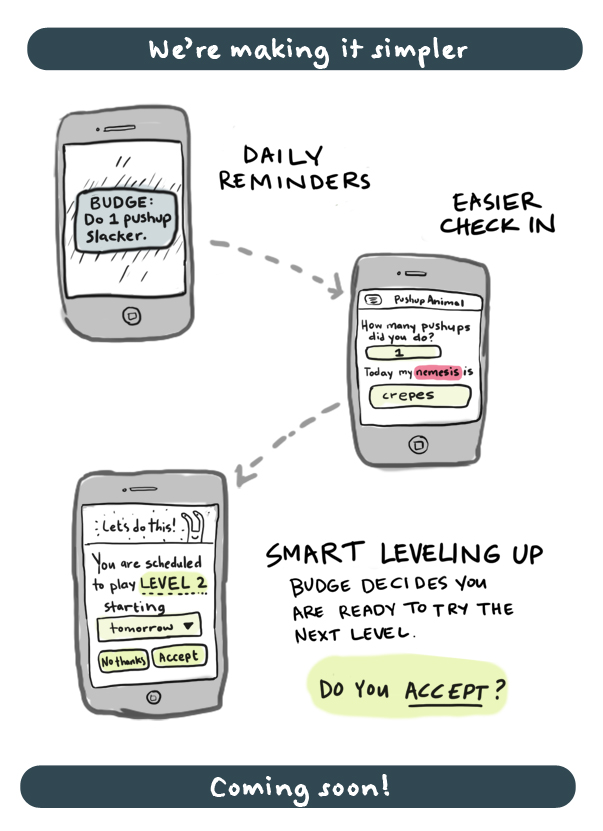 We're making it simpler
BUDGE:
Do 1 pushup
Slacker.
DAILY
REMINDERS
EASIER
CHECK IN
Pushup Animal
How many pushups
did you do?
1
Today my nemesis is
crepes
Let's do this!
You are scheduled
to play LEVEL 2
starting
tomorrow
No thanks
Accept
SMART LEVELING UP
BUDGE DECIDES YOU
ARE READY TO TRY THE
NEXT LEVEL.
DO YOU ACCEPT?
Coming soon!